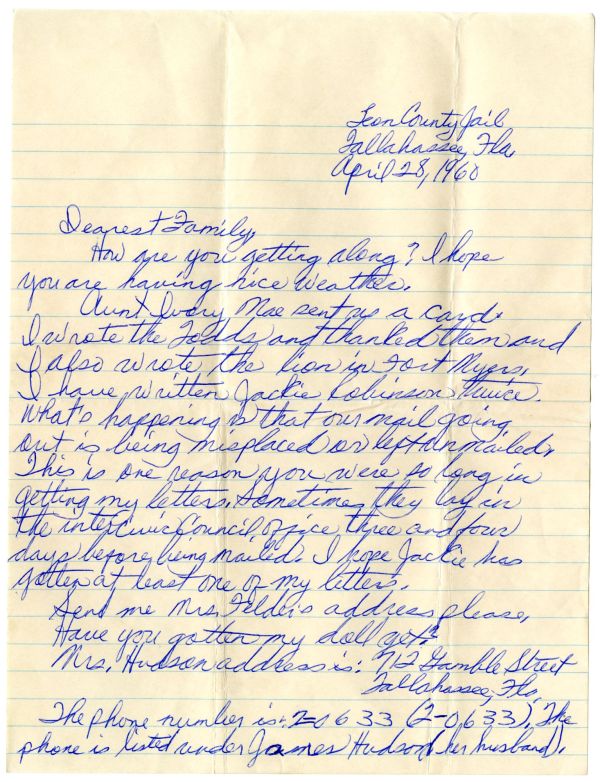 Leon County Jail
Tallahassee, Fla.
April 28, 1960
Dearest Family,
How are you getting along? I hope
you are having nice weather.
Aunt Ivory Mae sent us a card.
I wrote the Todds and thanked them and
I also wrote the lion in Fort Myers.
I have written Jackie Robinson twice.
What's happening is that our mail going
out is being misplaced or left unmailed.
This is one reason you were so long in
getting my letters. Sometimes they lay in
the inter Civic Council office three and four
days before being mailed. I hope Jackie has
gotten at least one of my letters.
Send me Mrs. address please.
Have you gotten my doll yet?
Mrs. Hudson address is: Gamble Street
Tallahassee, Fla.
The phone number is: 2-0633 (2-0,633). The
phone is listed under James Hudson (her husband).